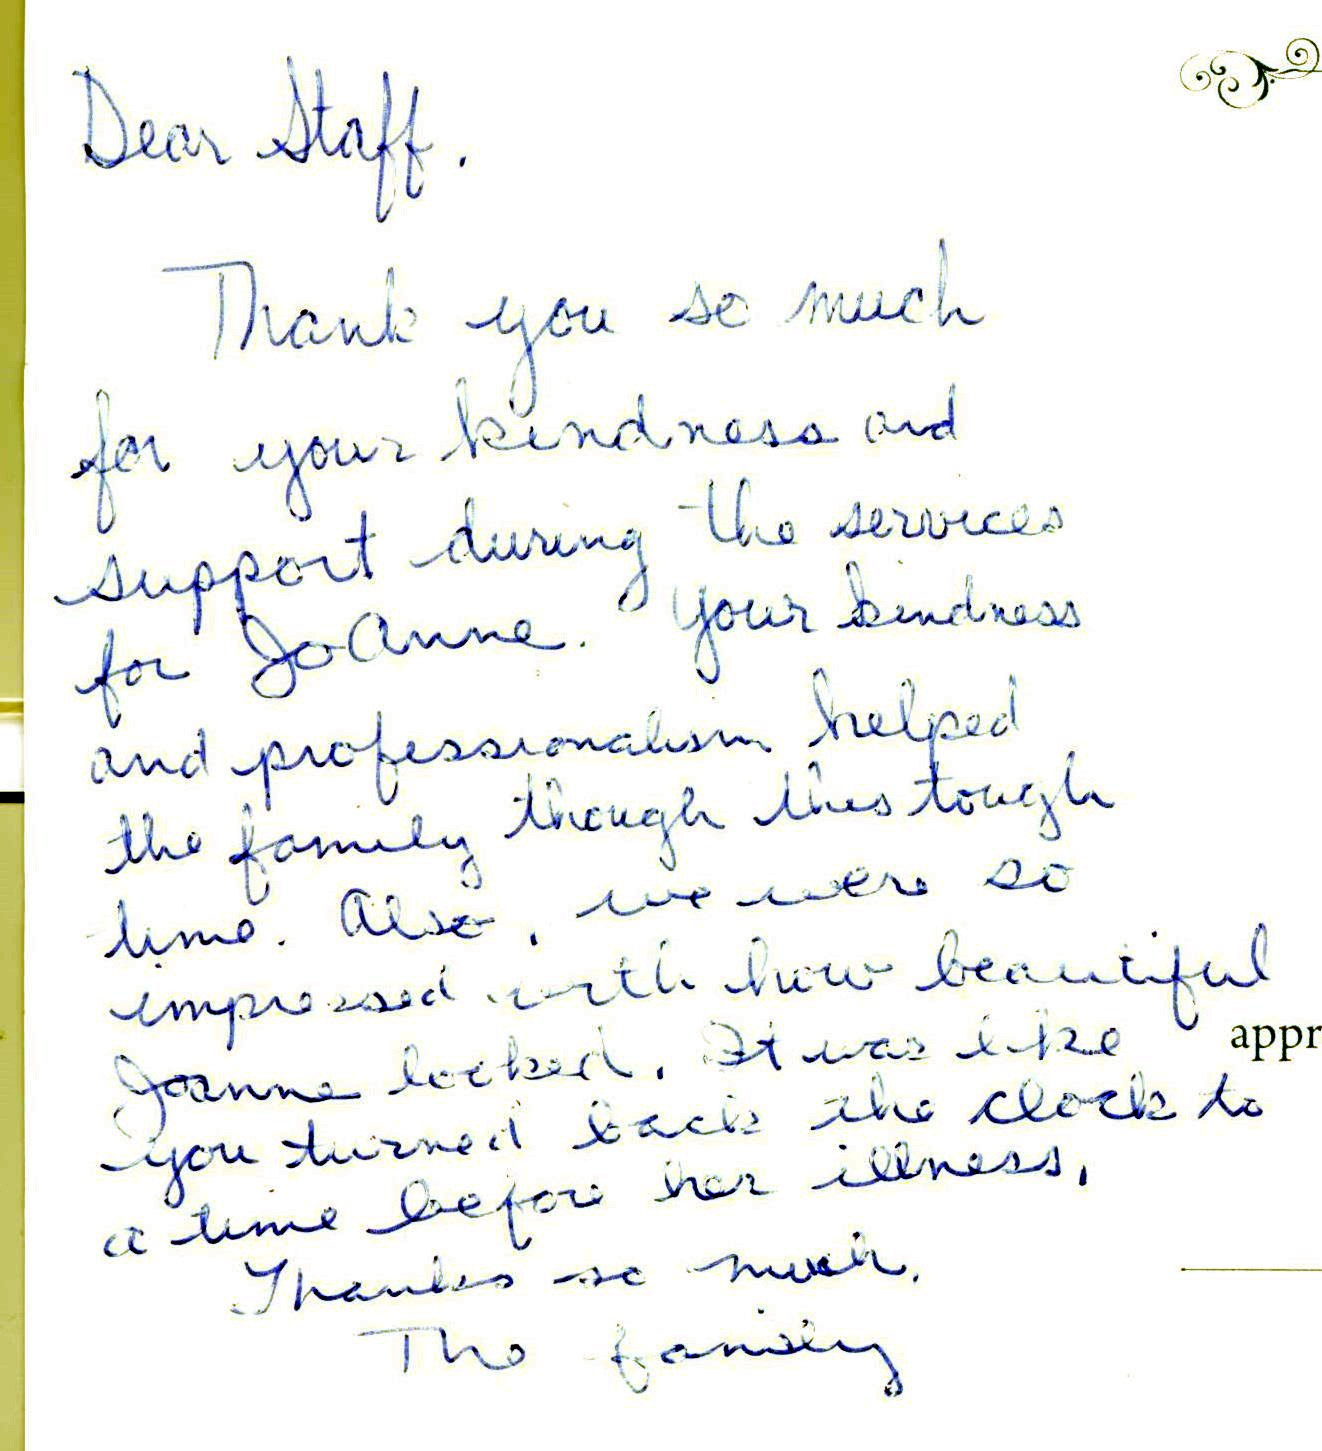 Dear Staff.
Thank you so much
for your kindness and
support during the services
for JoAnne. Your kindness
and professionalism helped
the family though this tough
time. Also, we were so
impressed with how beautiful
Joanne looked. It was like
appr
you turned back the clock to
a time before her illness.
Thanks so much.
The family